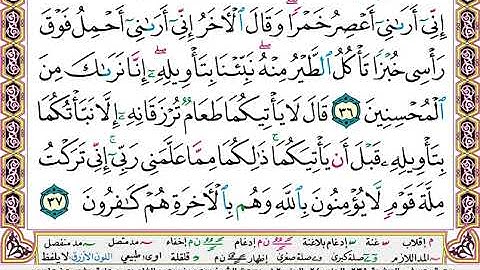 إِنِّىٓ أَرَىٰنِىٓ أَعْصِرُ خَمْرًا ۖ وَقَالَ ٱلْءَاخَرُ إِنِّىٓ أَرَىٰنِىٓ أَحْمِلُ فَوْقَ
رَأْسِى خُبْزًا تَأْكُلُ ٱلطَّيْرُ مِنْهُ ۖ نَبِّئْنَا بِتَأْوِيلِهِۦٓ ۖ إِنَّا نَرَىٰكَ مِنَ
ٱلْمُحْسِنِينَ ٣٦ قَالَ لَا يَأْتِيكُمَا طَعَامٌ تُرْزَقَانِهِۦٓ إِلَّا نَبَّأْتُكُمَا
بِتَأْوِيلِهِۦ قَبْلَ أَن يَأْتِيَكُمَا ۚ ذَٰلِكُمَا مِمَّا عَلَّمَنِى رَبِّىٓ ۚ إِنِّى تَرَكْتُ
مِلَّةَ قَوْمٍ لَّا يُؤْمِنُونَ بِٱللَّهِ وَهُم بِٱلْءَاخِرَةِ هُمْ كَـٰفِرُونَ ٣٧
م إقلاب غنة إدغام بلاغنة إدغام إخفاء مد متصل مد منفصل
المد اللازم صلة كبرى صلة صغرى إظهار قلقلة طبيعي اللون الأزرق لا يلفظ